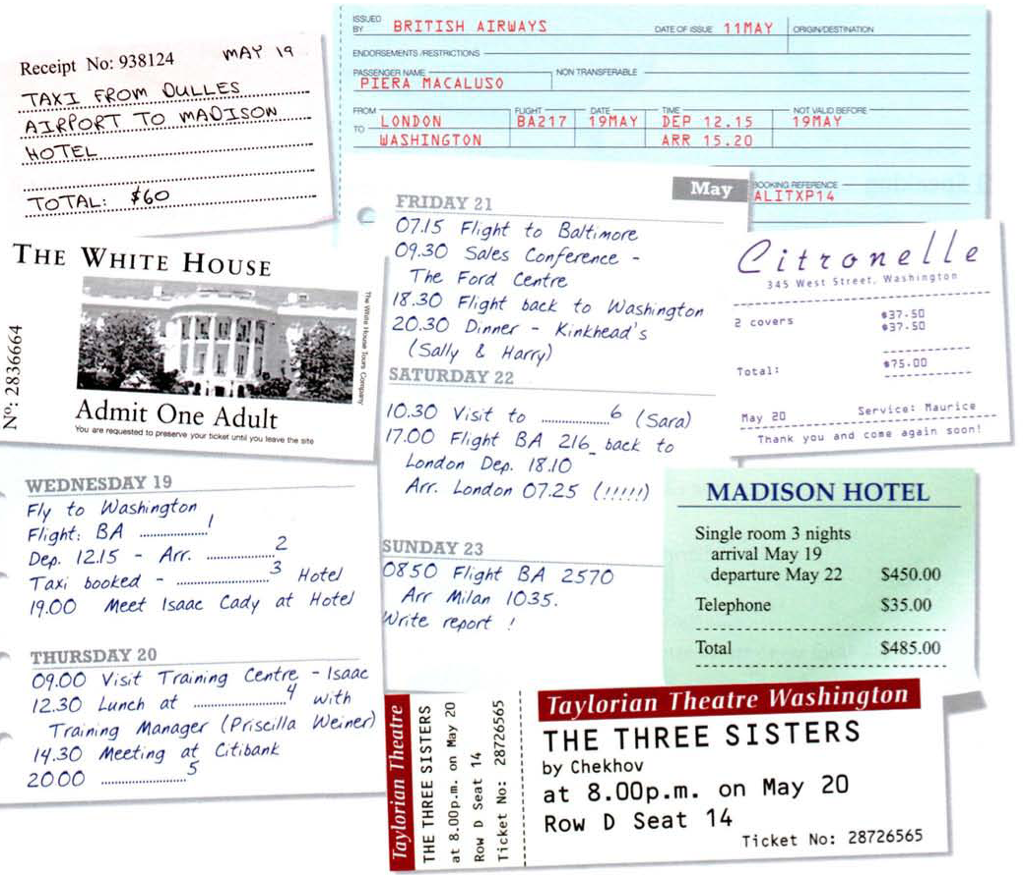 Receipt No: 938124 MAY 19
TAXI FROM DULLES
AIRPORT TO MADISON
HOTEL
TOTAL: $60
ISSUED BY BRITISH AIRWAYS DATE OF ISSUE 11MAY ORIGIN/DESTINATION
ENDORSEMENTS/RESTRICTIONS
PASSENGER NAME NON TRANSFERABLE
PIERA MACALUSO
FROM FLIGHT DATE TIME NOT VALID BEFORE
LONDON BA217 19MAY DEP 12.15 19MAY
TO WASHINGTON ARR 15.20
BOOKING REFERENCE
ALITXP14
THE WHITE HOUSE
The White House Tours Company
Nº: 2836664
Admit One Adult
You are requested to preserve your ticket until you leave the site
May
FRIDAY 21
07.15 Flight to Baltimore
09.30 Sales Conference -
The Ford Centre
18.30 Flight back to Washington
20.30 Dinner - Kinkhead's
(Sally & Harry)
SATURDAY 22
10.30 Visit to ..................6 (Sara)
17.00 Flight BA 216_ back to
London Dep. 18.10
Arr. London 07.25 (!!!!!)
SUNDAY 23
0850 Flight BA 2570
Arr Milan 1035.
Write report !
Citronelle
345 West Street, Washington
2 covers $37.50
$37.50
Total: $75.00
May 20 Service: Maurice
Thank you and come again soon!
WEDNESDAY 19
Fly to Washington
Flight: BA ..................1
Dep. 12.15 - Arr. ..................2
Taxi booked - ..................3 Hotel
19.00 Meet Isaac Cady at Hotel
THURSDAY 20
09.00 Visit Training Centre - Isaac
12.30 Lunch at ..................4 with
Training Manager (Priscilla Weiner)
14.30 Meeting at Citibank
20.00 ..................5
MADISON HOTEL
Single room 3 nights
arrival May 19
departure May 22 $450.00
Telephone $35.00
Total $485.00
Taylorian Theatre
THE THREE SISTERS
at 8.00p.m. on May 20
Row D Seat 14
Ticket No: 28726565
Taylorian Theatre Washington
THE THREE SISTERS
by Chekhov
at 8.00p.m. on May 20
Row D Seat 14
Ticket No: 28726565